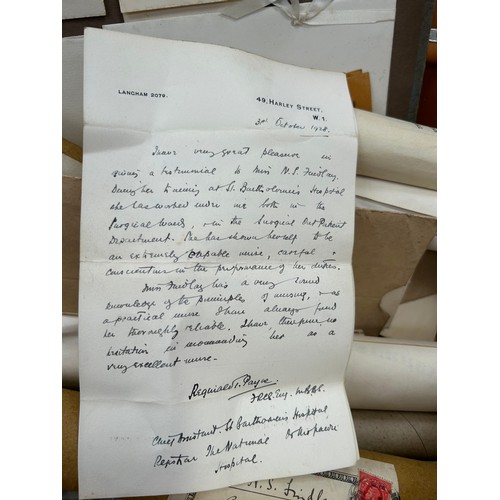 LANGHAM 2079.
49, HARLEY STREET,
W. 1.
3rd October 1928.
I have very great pleasure in
giving a testimonial to Miss N. S. Findlay.
During her training at St. Bartholomew's Hospital
she has worked under me both in the
Surgical Wards, & in the Surgical Out Patient
Department. She has shown herself to be
an extremely capable nurse, careful &
conscientious in the performance of her duties.
Miss Findlay has a very sound
knowledge of the principles of nursing, & as
a practical nurse I have always found
her thoroughly reliable. I have therefore no
hesitation in recommending her as a
very excellent nurse.
Reginald T. Payne
F.R.C.S. Eng. M.B. B.S.
Chief Assistant. St Bartholomew's Hospital,
Registrar The National Orthopaedic
Hospital.
N. S. Findlay